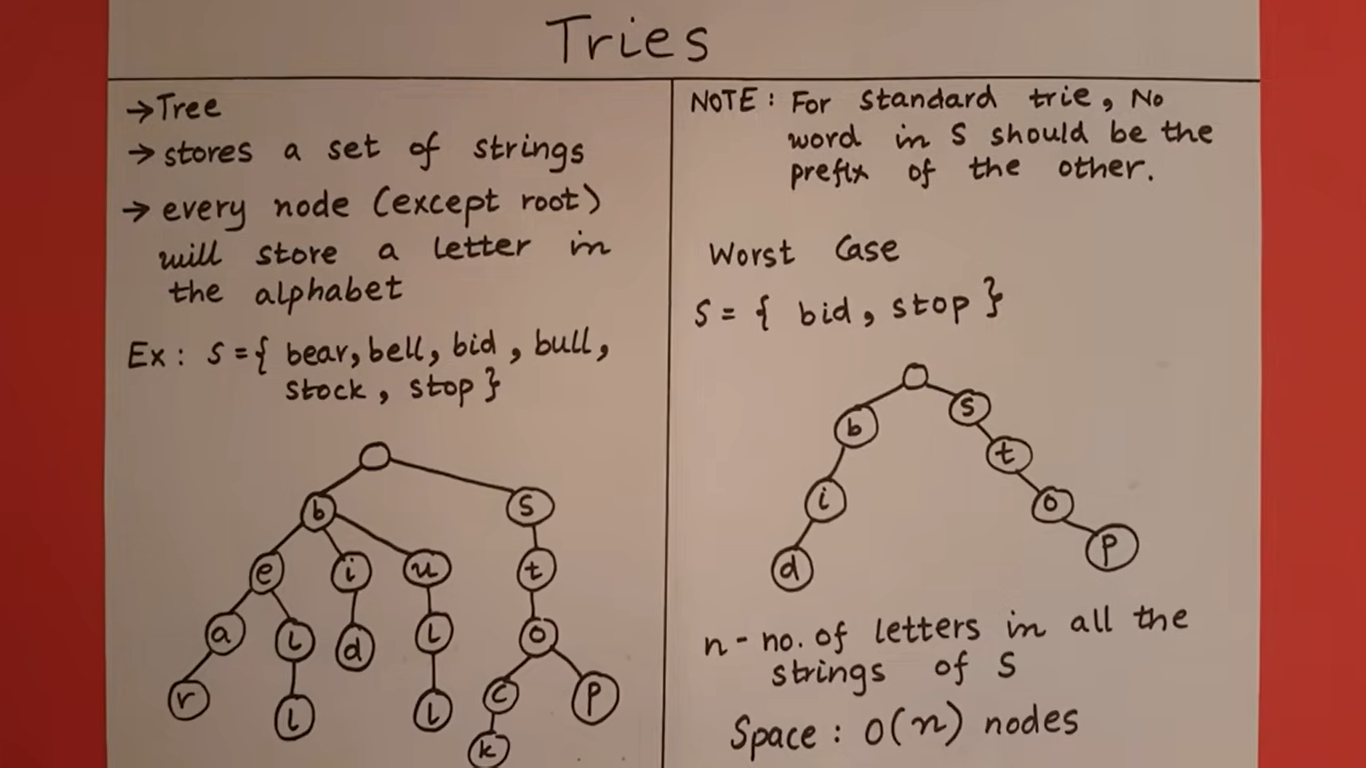 Tries
→ Tree
→ stores a set of strings
→ every node (except root)
will store a letter in
the alphabet
Ex: S={ bear, bell, bid, bull,
stock, stop }
b s
e i u t
a l d l o
r l l c p
k
NOTE: For standard trie, No
word in S should be the
prefix of the other.
Worst Case
S = { bid, stop }
s
b
t
i
o
p
d
n - no. of letters in all the
strings of S
Space: O(n) nodes